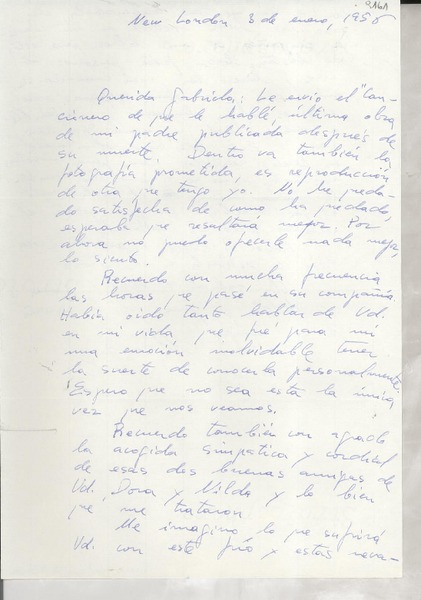 9161
New London 3 de enero, 1956
Querida Gabriela: Le envío el "Can-
cionero de que le hablé, última obra
de mi padre publicada después de
su muerte. Dentro va también la
fotografía prometida, es reproducción
de otra que tengo yo. No he queda-
do satisfecha de como ha quedado,
esperaba que resultara mejor. Por
ahora no puedo ofrecerle nada mejor,
lo siento.
Recuerdo con mucha frecuencia
las horas que pasé en su compañía.
Había oído tanto hablar de Vd.
en mi vida que fué para mí
una emoción inolvidable tener
la suerte de conocerla personalmente.
¡Espero que no sea esta la única
vez que nos veamos.
Recuerdo también con agrado
la acogida simpática y cordial
de esas dos buenas amigas de
Vd., Dora y Nilda y lo bien
que me trataron.
Me imagino lo que sufrirá
Vd. con este frío y estas neva-